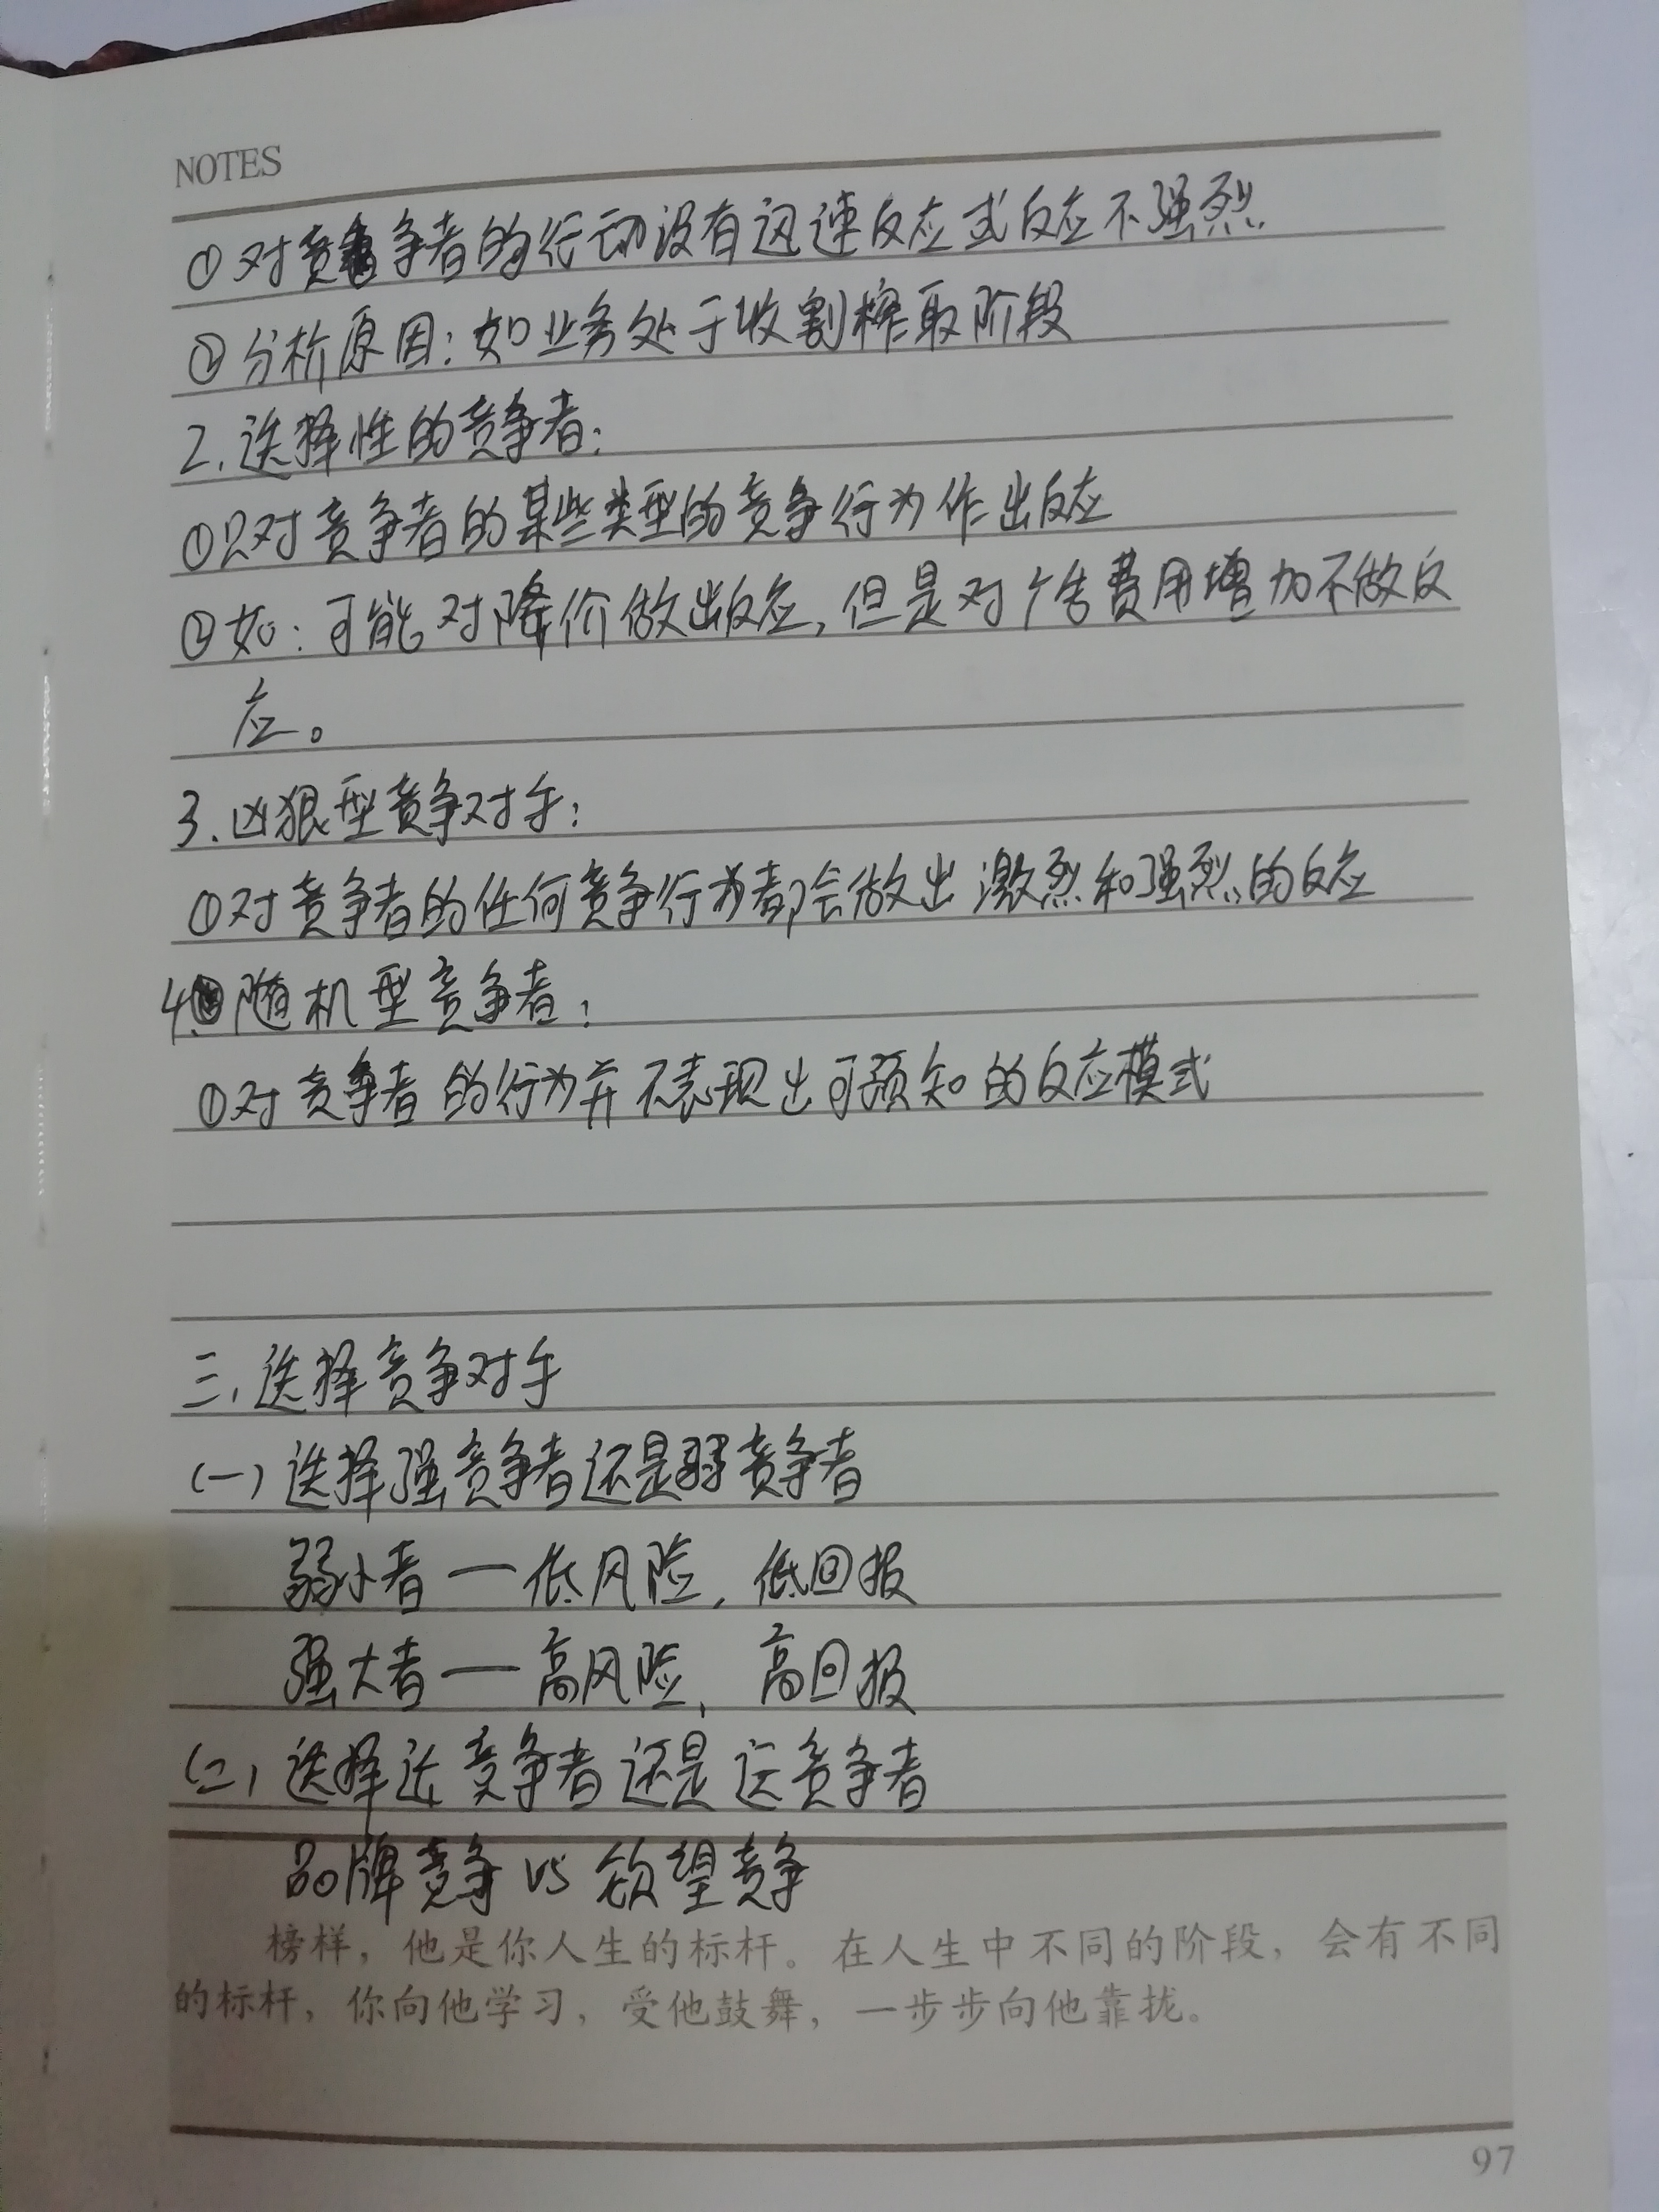 NOTES
①对竞争者的行动没有迅速反应或反应不强烈
②分析原因：如业务处于收割榨取阶段
2.选择性的竞争者：
①只对竞争者的某些类型的竞争行为作出反应
②如：可能对降价做出反应，但是对广告费用增加不做反
应。
3.凶狠型竞争对手：
①对竞争者的任何竞争行为都会做出激烈和强烈的反应
4.随机型竞争者：
①对竞争者的行为并不表现出可预知的反应模式
三、选择竞争对手
(一)选择强竞争者还是弱竞争者
弱小者—低风险，低回报
强大者—高风险，高回报
(二)选择近竞争者还是远竞争者
品牌竞争 VS 欲望竞争
榜样，他是你人生的标杆。在人生中不同的阶段，会有不同
的标杆，你向他学习，受他鼓舞，一步步向他靠拢。
97